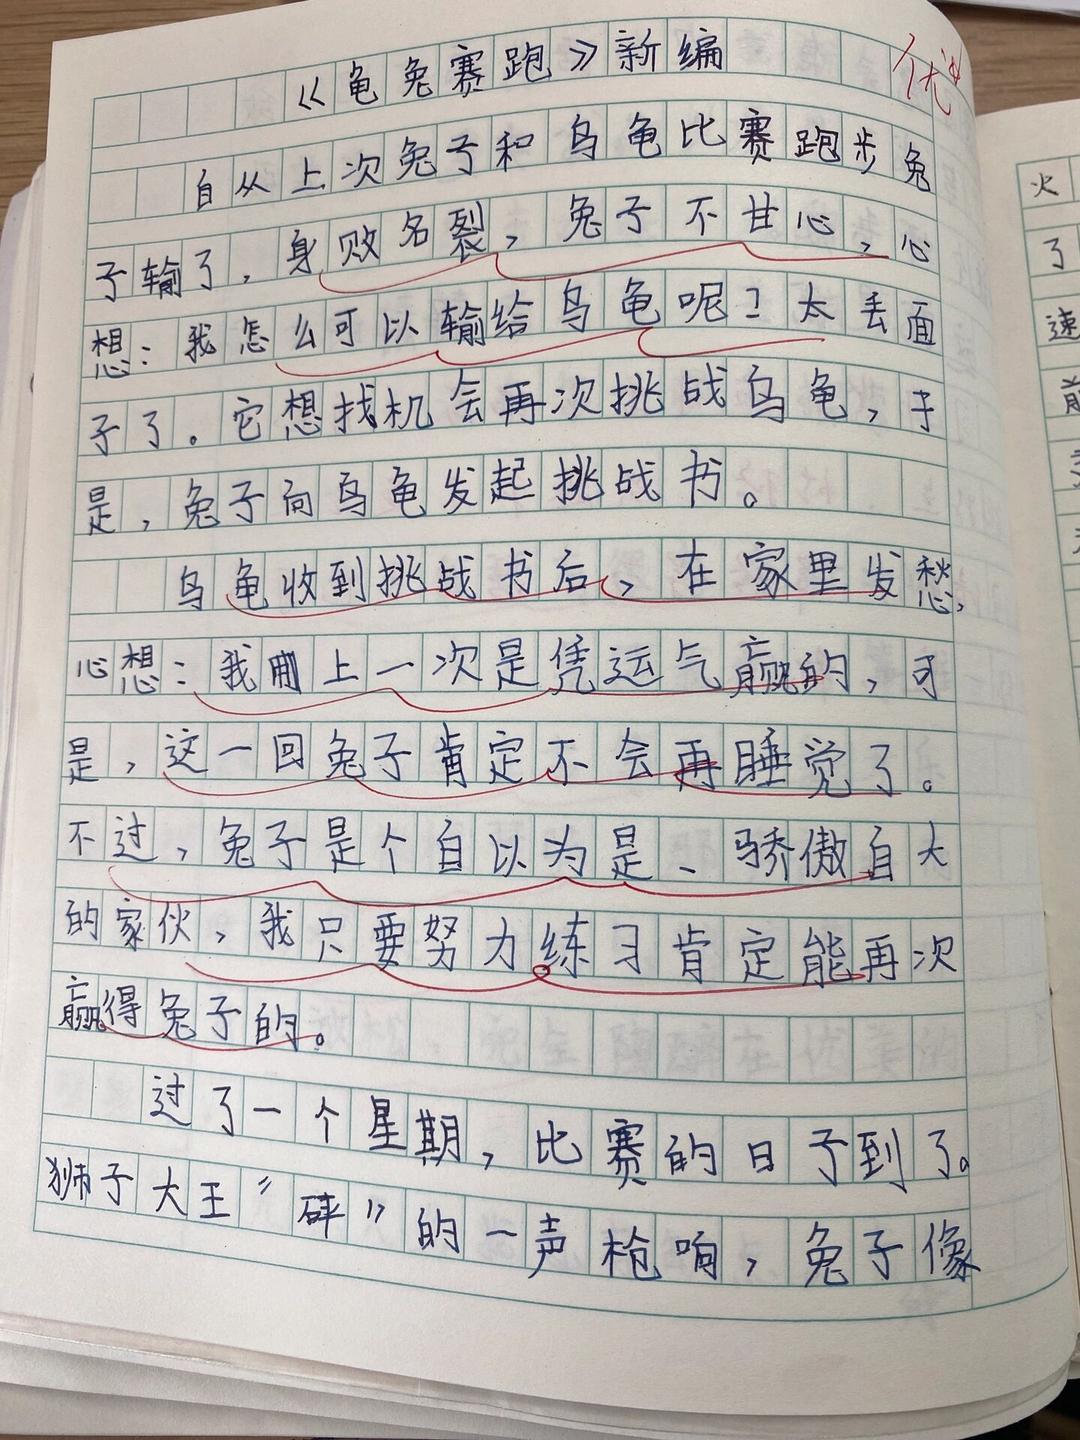 《龟兔赛跑》新编
优
自从上次兔子和乌龟比赛跑步兔
子输了，身败名裂，兔子不甘心，心
想：我怎么可以输给乌龟呢？太丢面
子了。它想找机会再次挑战乌龟，于
是，兔子向乌龟发起挑战书。
乌龟收到挑战书后，在家里发愁，
心想：我刚上一次是凭运气赢的，可
是，这一回兔子肯定不会再睡觉了。
不过，兔子是个自以为是、骄傲自大
的家伙，我只要努力练习肯定能再次
赢得兔子的。
过了一个星期，比赛的日子到了。
狮子大王“砰”的一声枪响，兔子像
火
了
速
前